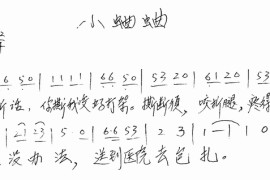 小蛐蛐
2/4
6 6 5 0 | 1 1 1 1 | 6 6 5 0 | 5 3 2 0 | 6 1 2 0 | 5 3
话，你撕我咬好打架。撕断须，咬断腿，疼得
2 1 2 3 | 5 0 | 6 6 5 3 | 2 3 | 1 — | 1 0
没办法，送到医院去包扎。